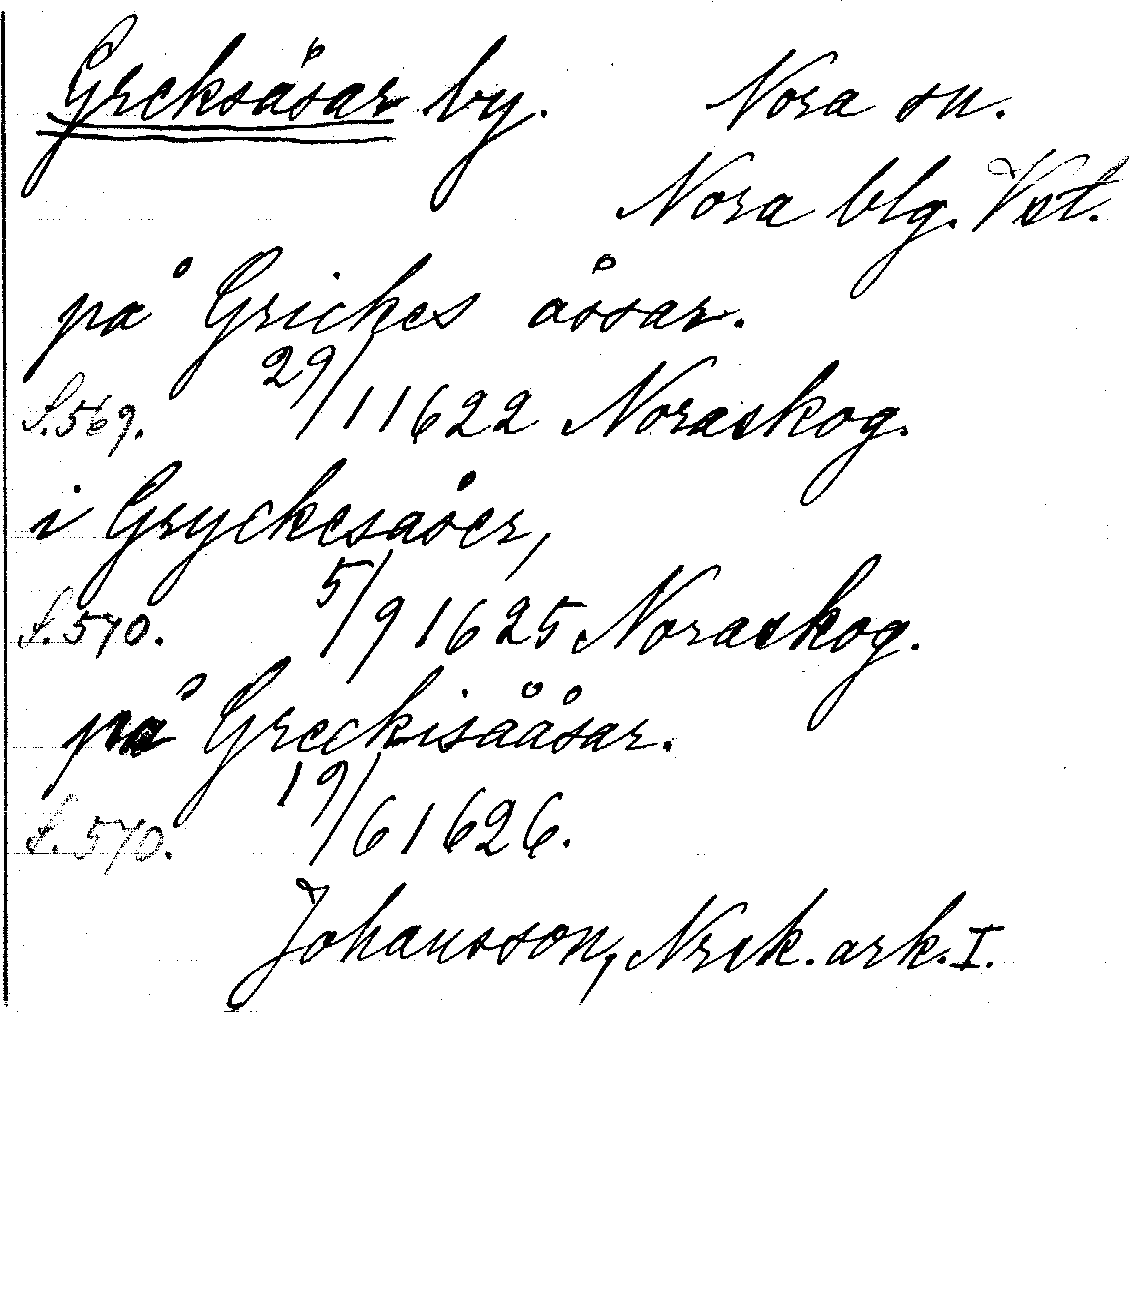 Greksåsar by. Nora sn.
Nora blg. Vst.
på Grickes åssar.
S. 569. 29/11 1622 Noraskog.
i Gryckesåser,
S. 570. 5/9 1625 Noraskog.
på Greckisååsar.
S. 570. 19/6 1626.
Johansson, Nrsk. ark. I.